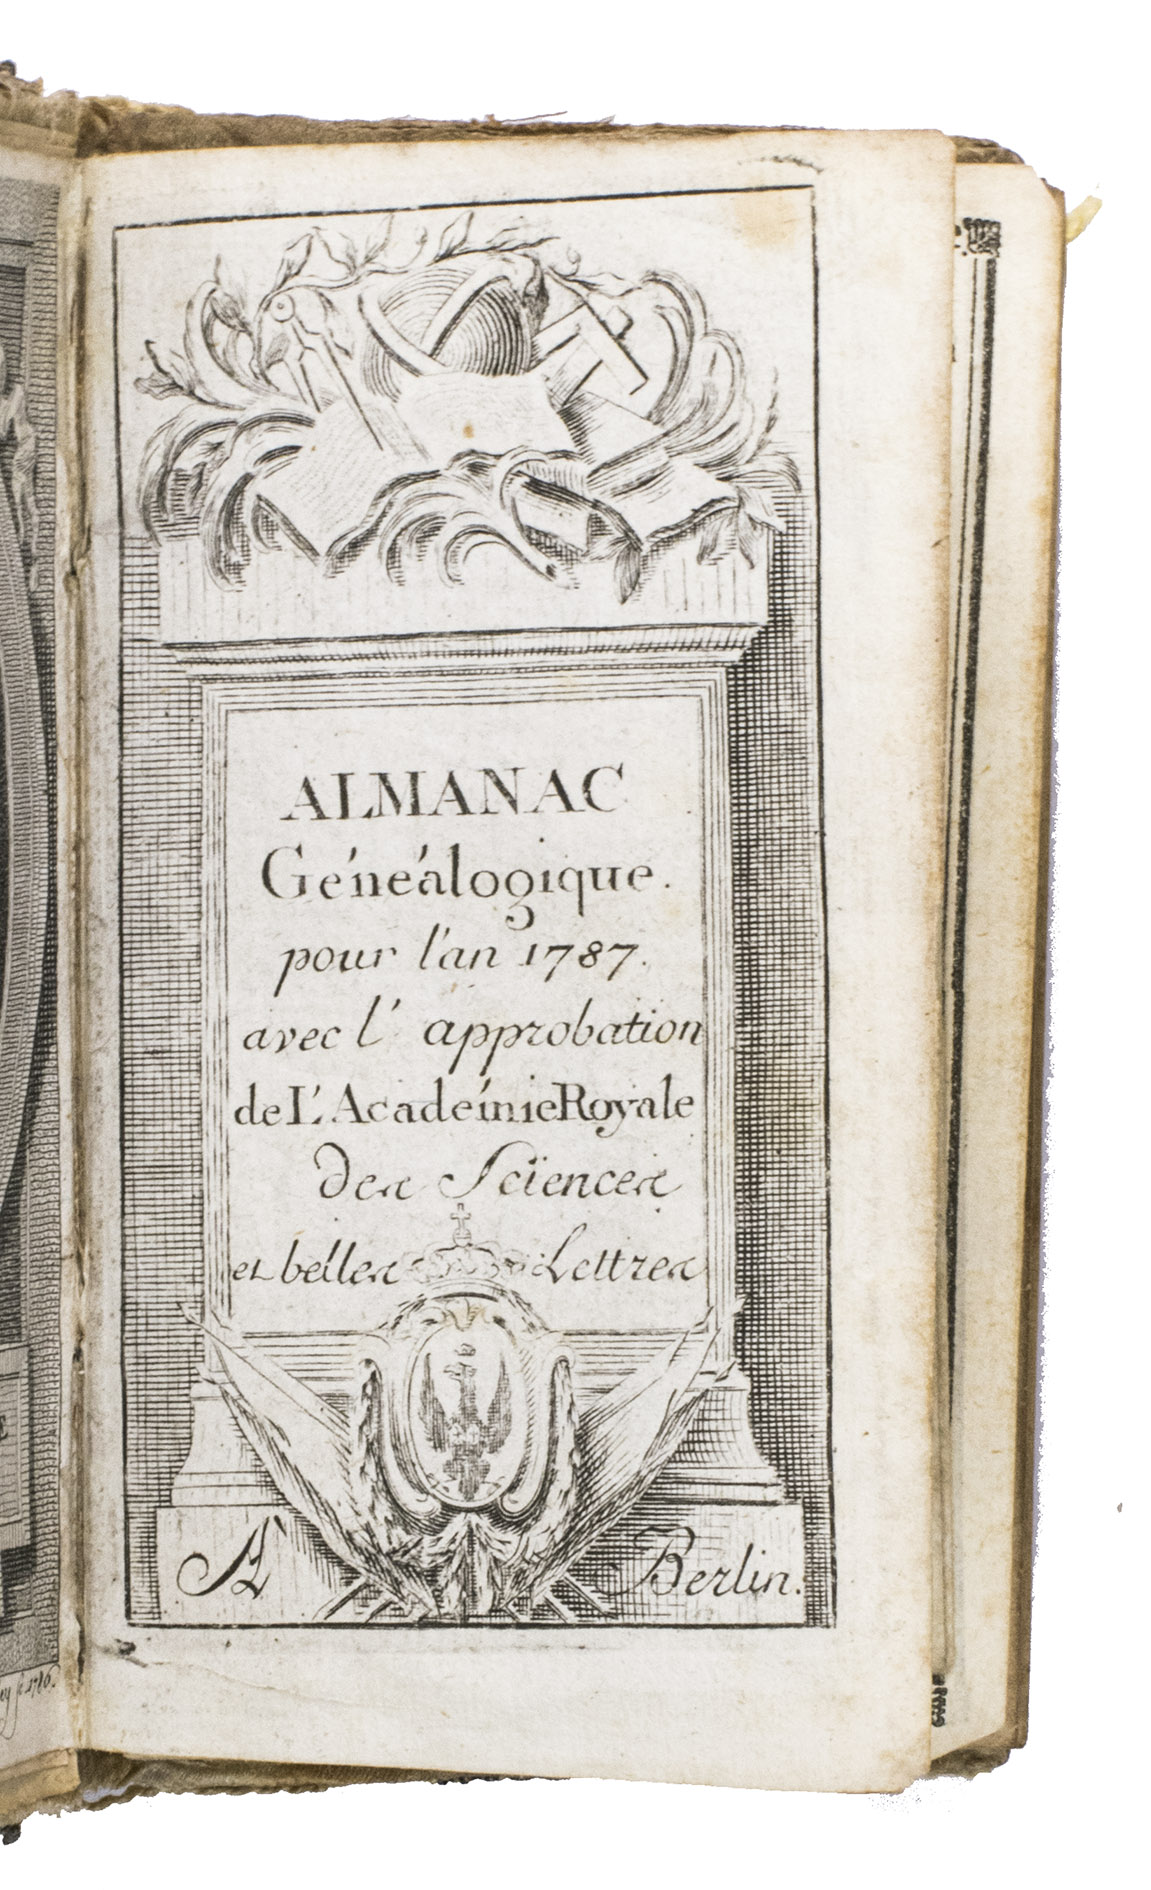 ALMANAC
Généalogique.
pour l'an 1787.
avec l' approbation
de L'Académie Royale
des Sciences
et belles Lettres
A Berlin.
1786.